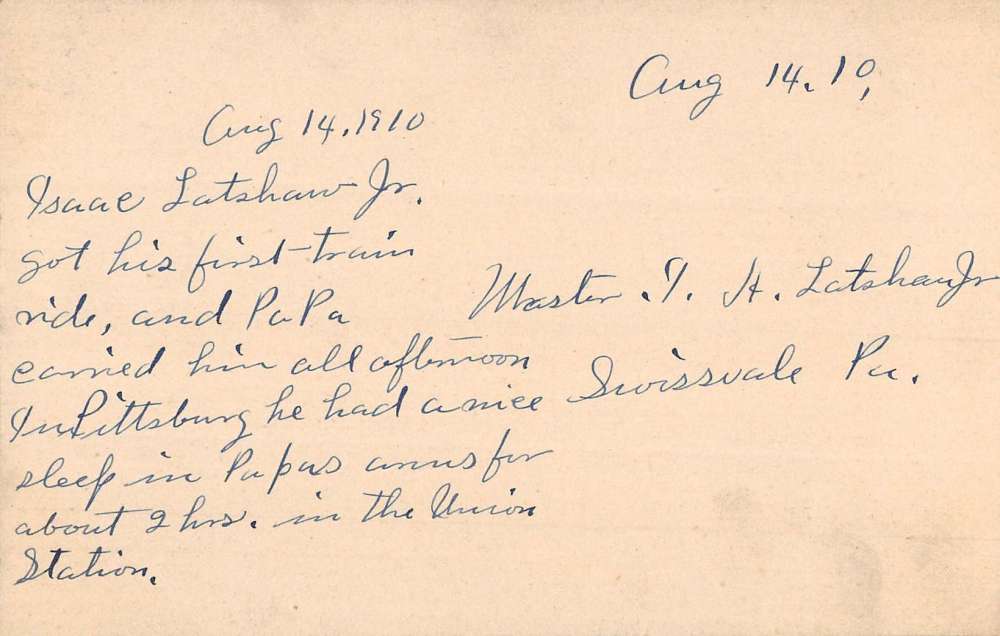 Aug 14.10,
Aug 14, 1910
Isaac Latshaw Jr.
got his first train
ride, and PaPa
carried him all afternoon
In Pittsburg he had a nice
sleep in Papas arms for
about 2 hrs. in the Union
Station.
Master . I. H. Latshaw Jr
Swissvale Pa.